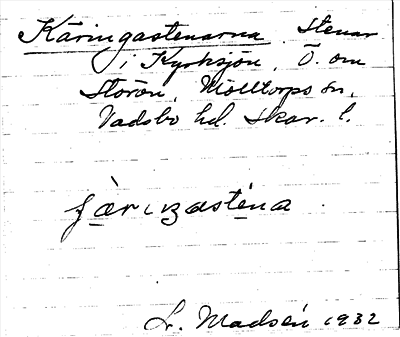 Käringastenarna. Stenar
i Kyrksjön, Ö. om
Störön, Mölltorps sn,
Vadsbo hd. Skar. l.
Lr. Madsén 1932